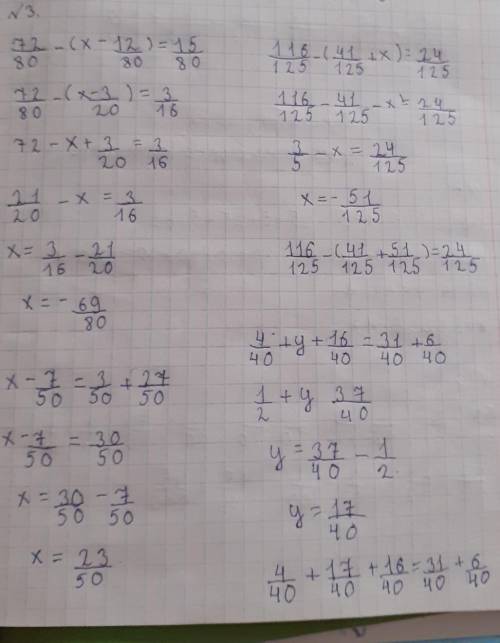 №3.
72/80 - (x - 12/80) = 15/80
72/80 - (x - 3/20) = 3/16
72 - x + 3/20 = 3/16
21/20 - x = 3/16
x = 3/16 - 21/20
x = - 69/80
x - 7/50 = 3/50 + 27/50
x - 7/50 = 30/50
x = 30/50 - 7/50
x = 23/50
116/125 - (41/125 + x) = 24/125
116/125 - 41/125 - x = 24/125
3/5 - x = 24/125
x = - 51/125
116/125 - (41/125 + 51/125) = 24/125
4/40 + y + 16/40 = 31/40 + 6/40
1/2 + y 37/40
y = 37/40 - 1/2
y = 17/40
4/40 + 17/40 + 16/40 = 31/40 + 6/40